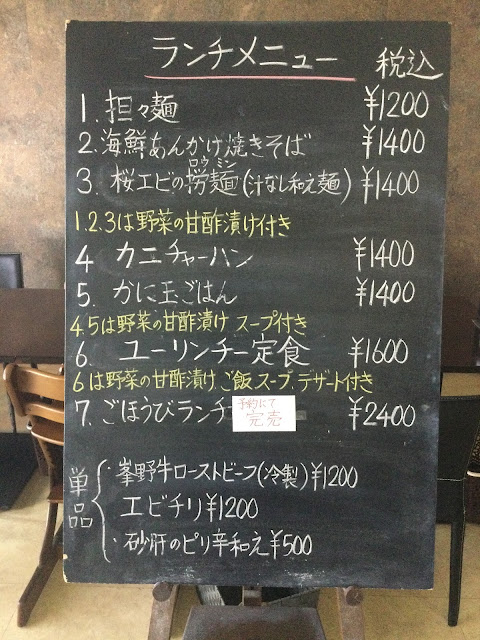 ランチメニュー 税込
1. 担々麺 ¥1200
2. 海鮮あんかけ焼きそば ¥1400
ロウミン
3. 桜エビの撈麺(汁なし和え麺) ¥1400
1.2.3は野菜の甘酢漬け付き
4 カニチャーハン ¥1400
5. かに玉ごはん ¥1400
4.5は野菜の甘酢漬け スープ付き
6. ユーリンチー定食 ¥1600
6は野菜の甘酢漬け、ご飯、スープ、デザート付き
7. ごほうびランチ ¥2400
予約にて
完売
単品
・峯野牛ローストビーフ(冷製)¥1200
エビチリ¥1200
・砂肝のピリ辛和え¥500